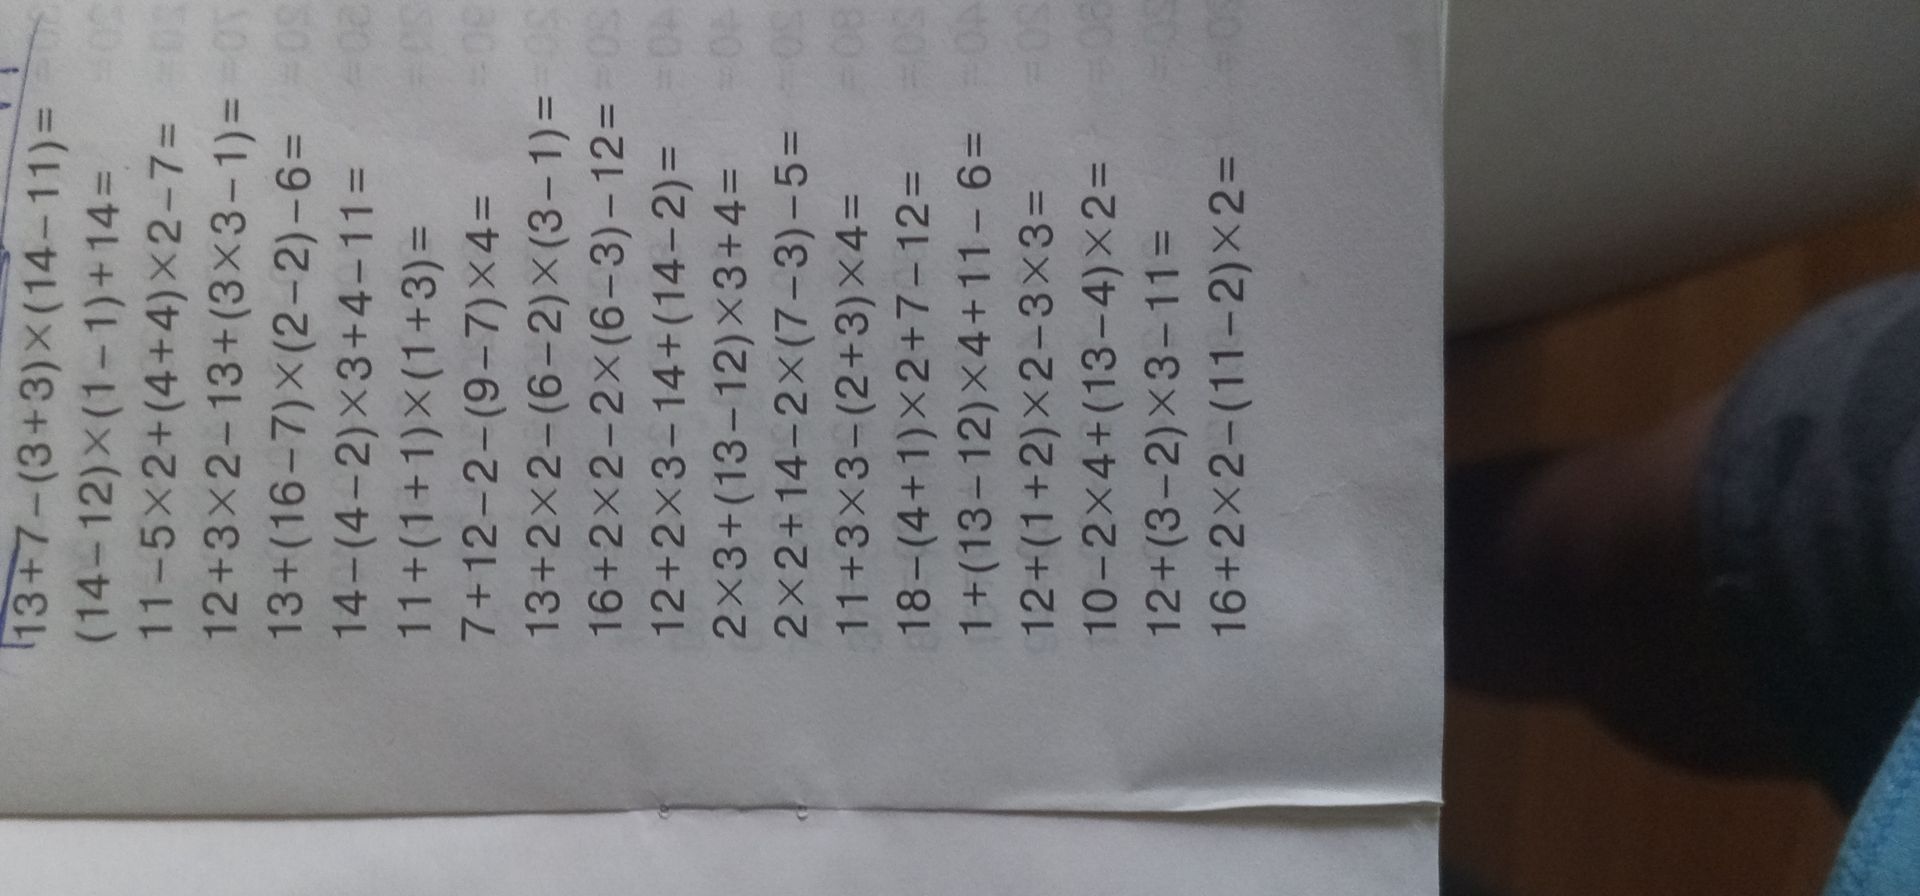 13+7-(3+3)×(14-11)=
(14-12)×(1-1)+14=
11-5×2+(4+4)×2-7=
12+3×2-13+(3×3-1)=
13+(16-7)×(2-2)-6=
14-(4-2)×3+4-11=
11+(1+1)×(1+3)=
7+12-2-(9-7)×4=
13+2×2-(6-2)×(3-1)=
16+2×2-2×(6-3)-12=
12+2×3-14+(14-2)=
2×3+(13-12)×3+4=
2×2+14-2×(7-3)-5=
11+3×3-(2+3)×4=
18-(4+1)×2+7-12=
1+(13-12)×4+11-6=
12+(1+2)×2-3×3=
10-2×4+(13-4)×2=
12+(3-2)×3-11=
16+2×2-(11-2)×2=